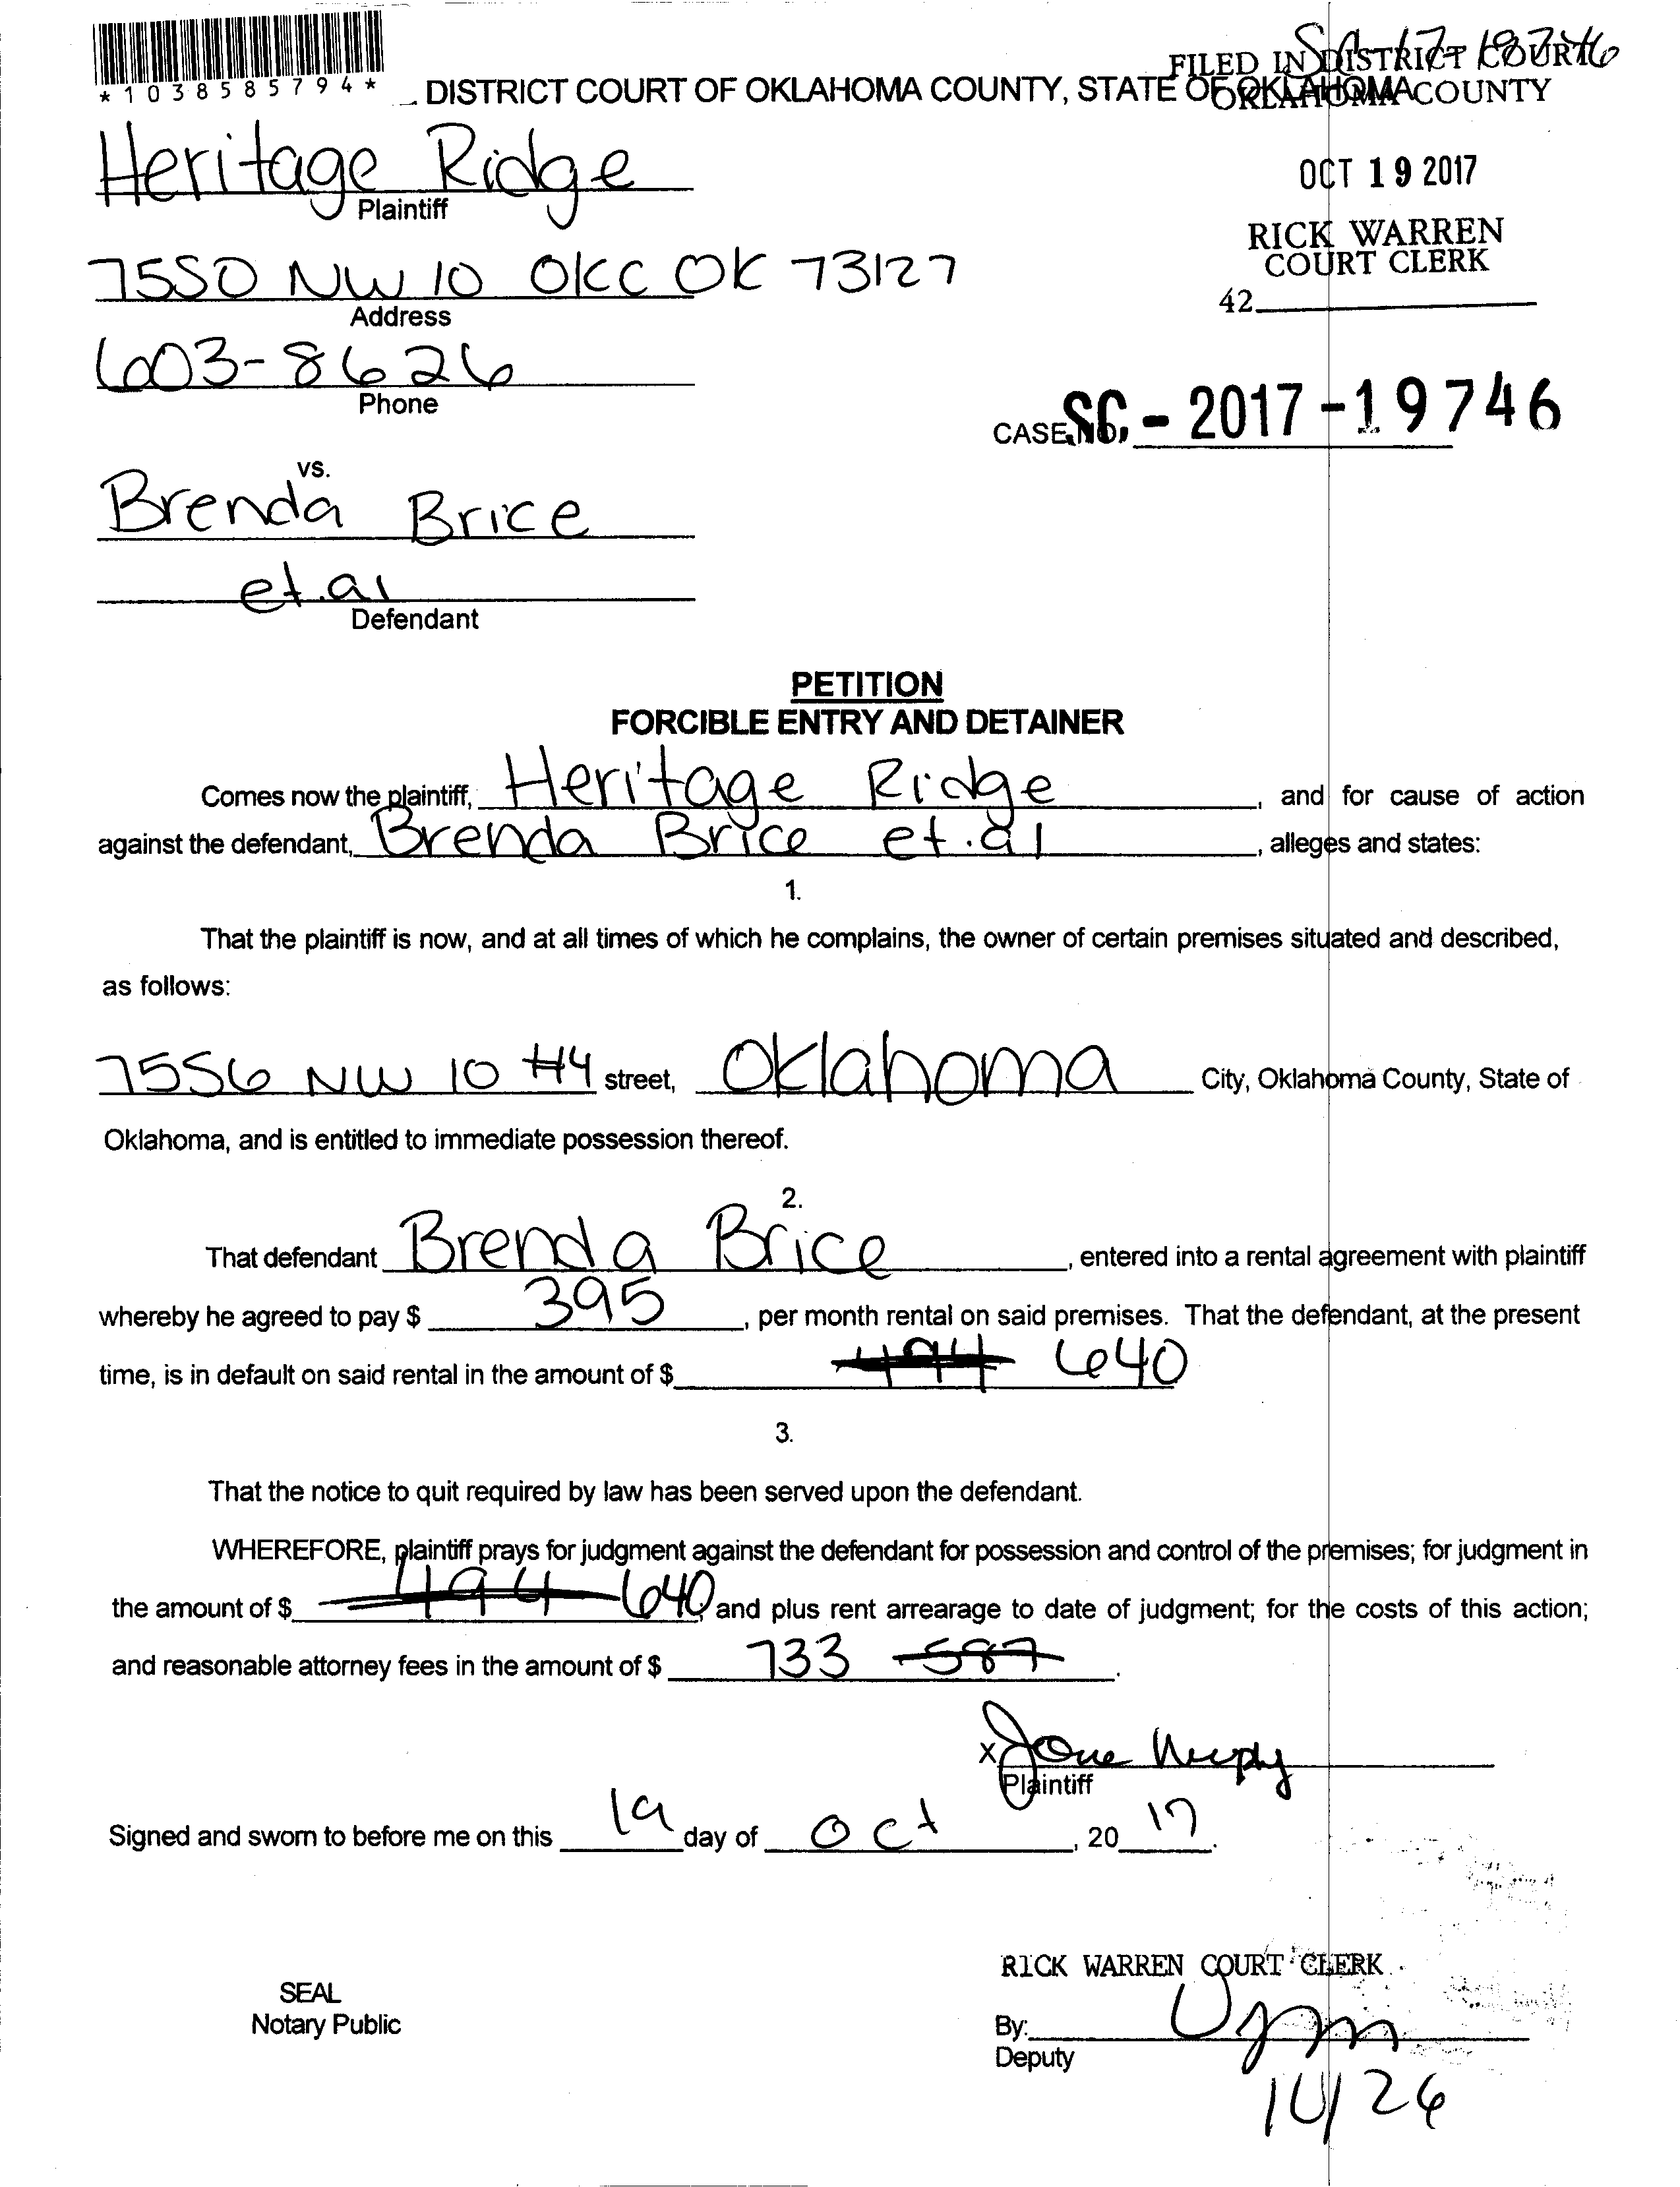 SC-17-19746
*1038585794*
DISTRICT COURT OF OKLAHOMA COUNTY, STATE OF OKLAHOMA
FILED IN DISTRICT COURT
OKLAHOMA COUNTY
OCT 19 2017
RICK WARREN
COURT CLERK
42
Heritage Ridge
Plaintiff
7550 NW 10 OKC OK 73127
Address
603-8626
Phone
CASE NO. SC - 2017 - 19746
vs.
Brenda Brice
et.al
Defendant
PETITION
FORCIBLE ENTRY AND DETAINER
Comes now the plaintiff, Heritage Ridge, and for cause of action
against the defendant, Brenda Brice et.al, alleges and states:
1.
That the plaintiff is now, and at all times of which he complains, the owner of certain premises situated and described,
as follows:
7556 NW 10 #4 street, Oklahoma City, Oklahoma County, State of
Oklahoma, and is entitled to immediate possession thereof.
2.
That defendant Brenda Brice, entered into a rental agreement with plaintiff
whereby he agreed to pay $ 395, per month rental on said premises. That the defendant, at the present
time, is in default on said rental in the amount of $ 494 640
3.
That the notice to quit required by law has been served upon the defendant.
WHEREFORE, plaintiff prays for judgment against the defendant for possession and control of the premises; for judgment in
the amount of $ 494 640, and plus rent arrearage to date of judgment; for the costs of this action;
and reasonable attorney fees in the amount of $ 733 587.
x Jane Murphy
Plaintiff
Signed and sworn to before me on this 19 day of Oct, 20 17.
RICK WARREN COURT CLERK
SEAL
Notary Public
By:
Deputy
10/26